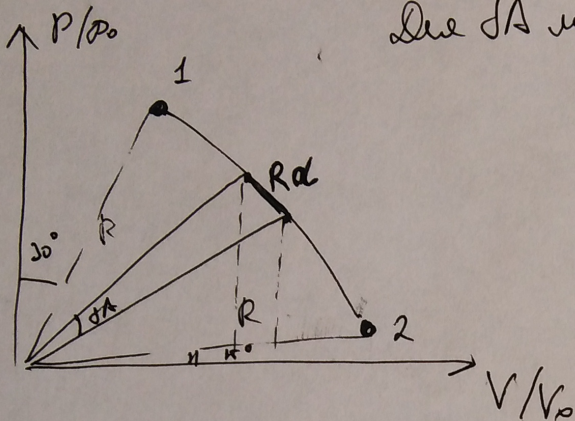 P/p₀
Для δA и
1
Rα
30°
R
δA
R
2
V/V₀